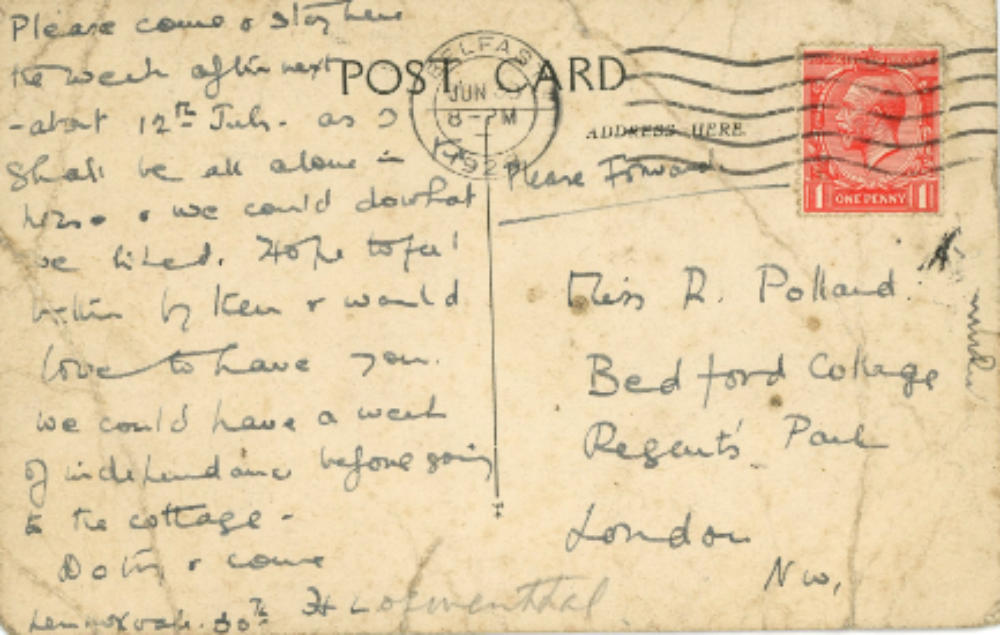 Please come & stay here
the week after next
- about 12th July - as I
shall be all alone in
house & we could do what
we liked. Hope to feel
better by then & would
love to have you.
We could have a week
of independance before going
to the cottage -
Do try & come
Lennoxvale. 30th H Loewenthal
POST CARD
BELFAST
JUN
8 - PM
192
ADDRESS HERE
ONE PENNY
Please Forward
Miss R. Pollard
Bedford College
Regents' Park
London
NW,